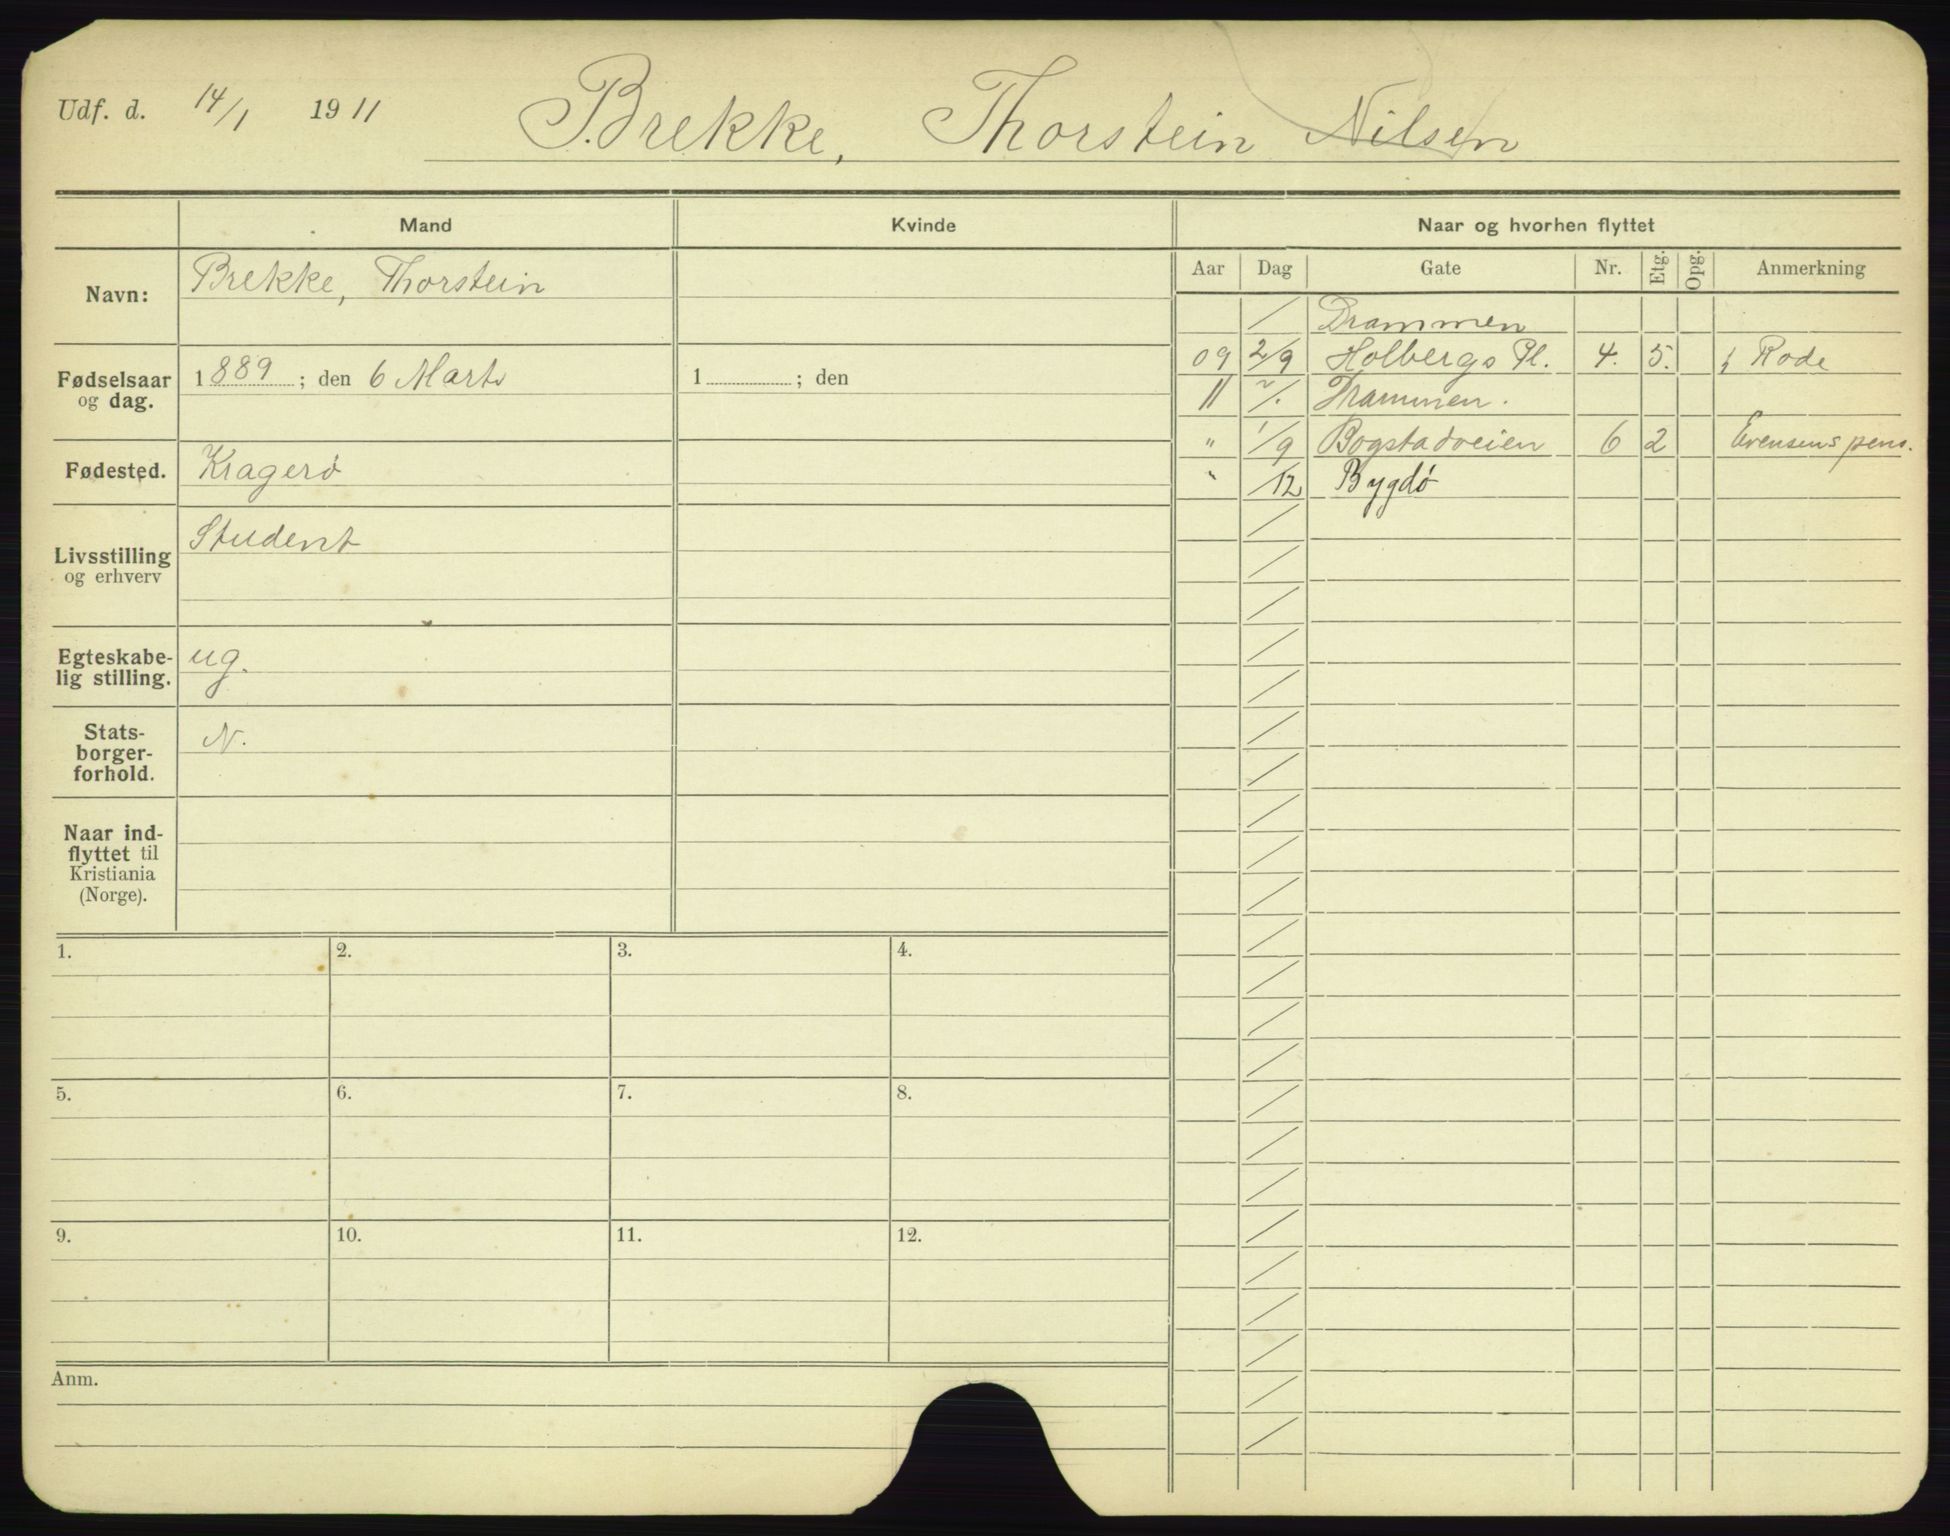 Udf. d. 14/1 1911 Brekke, Thorstein Nilsen
Mand Kvinde Naar og hvorhen flyttet
Aar Dag Gate Nr. Etg. Opg. Anmerkning
Navn: Brekke, Thorstein
Fødselsaar og dag. 1889; den 6 Marts 1 ; den
Fødested. Kragerö
Livsstilling og erhverv Student
Egteskabelig stilling. ug.
Statsborgerforhold. N.
Naar indflyttet til Kristiania (Norge).
/ Drammen
09 2/9 Holbergs Pl. 4. 5. Rode
11 Drammen.
" 1/9 Bogstadveien 6 2 Evensens pens.
" /12 Bygdö
1. 2. 3. 4.
5. 6. 7. 8.
9. 10. 11. 12.
Anm.